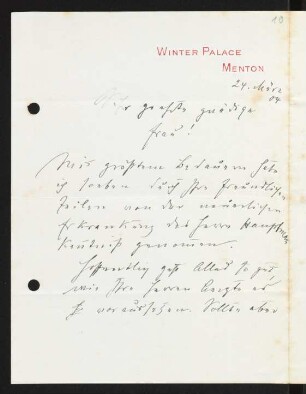 10
WINTER PALACE
MENTON
24. März
04
Sehr geehrte gnädige
Frau!
Mit größtem Bedauern habe
ich soeben durch Ihre freundlichen
Zeilen von der neuerlichen
Erkrankung des Herrn Hauptmann
Kenntniß genommen.
Hoffentlich geht Alles so gut,
wie Ihre Herren Aerzte es
voraussehen. Sollte aber